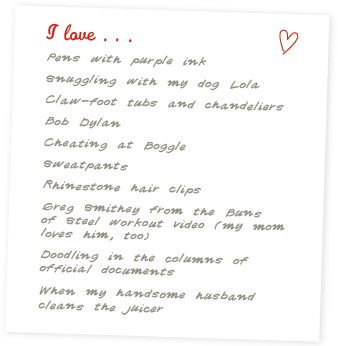 I love . . .
Pens with purple ink
Snuggling with my dog Lola
Claw-foot tubs and chandeliers
Bob Dylan
Cheating at Boggle
Sweatpants
Rhinestone hair clips
Greg Smithey from the Buns
of Steel workout video (my mom
loves him, too)
Doodling in the columns of
official documents
When my handsome husband
cleans the juicer